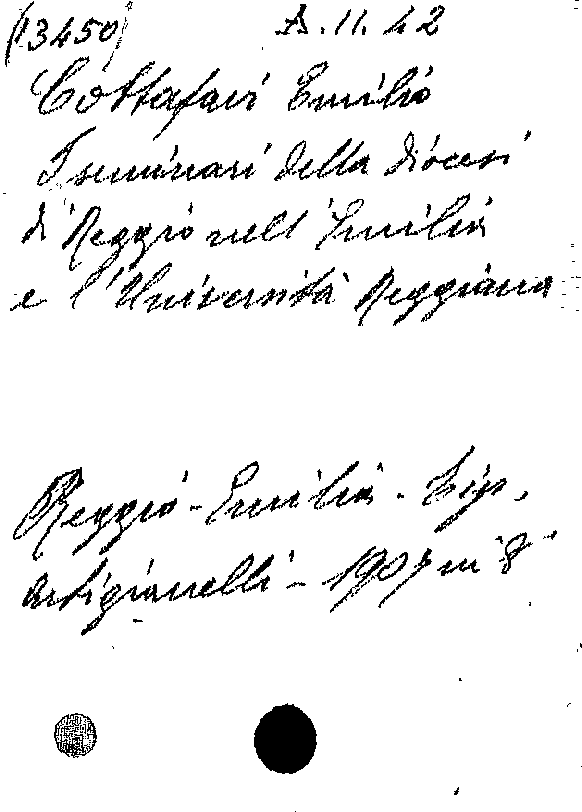 (13450) A. 11. 42
Cottafavi Emilio
I seminari della diocesi
di Reggio nell'Emilia
e l'Università Reggiana
Reggio-Emilia. Tip.
Artigianelli - 1907 in 8°